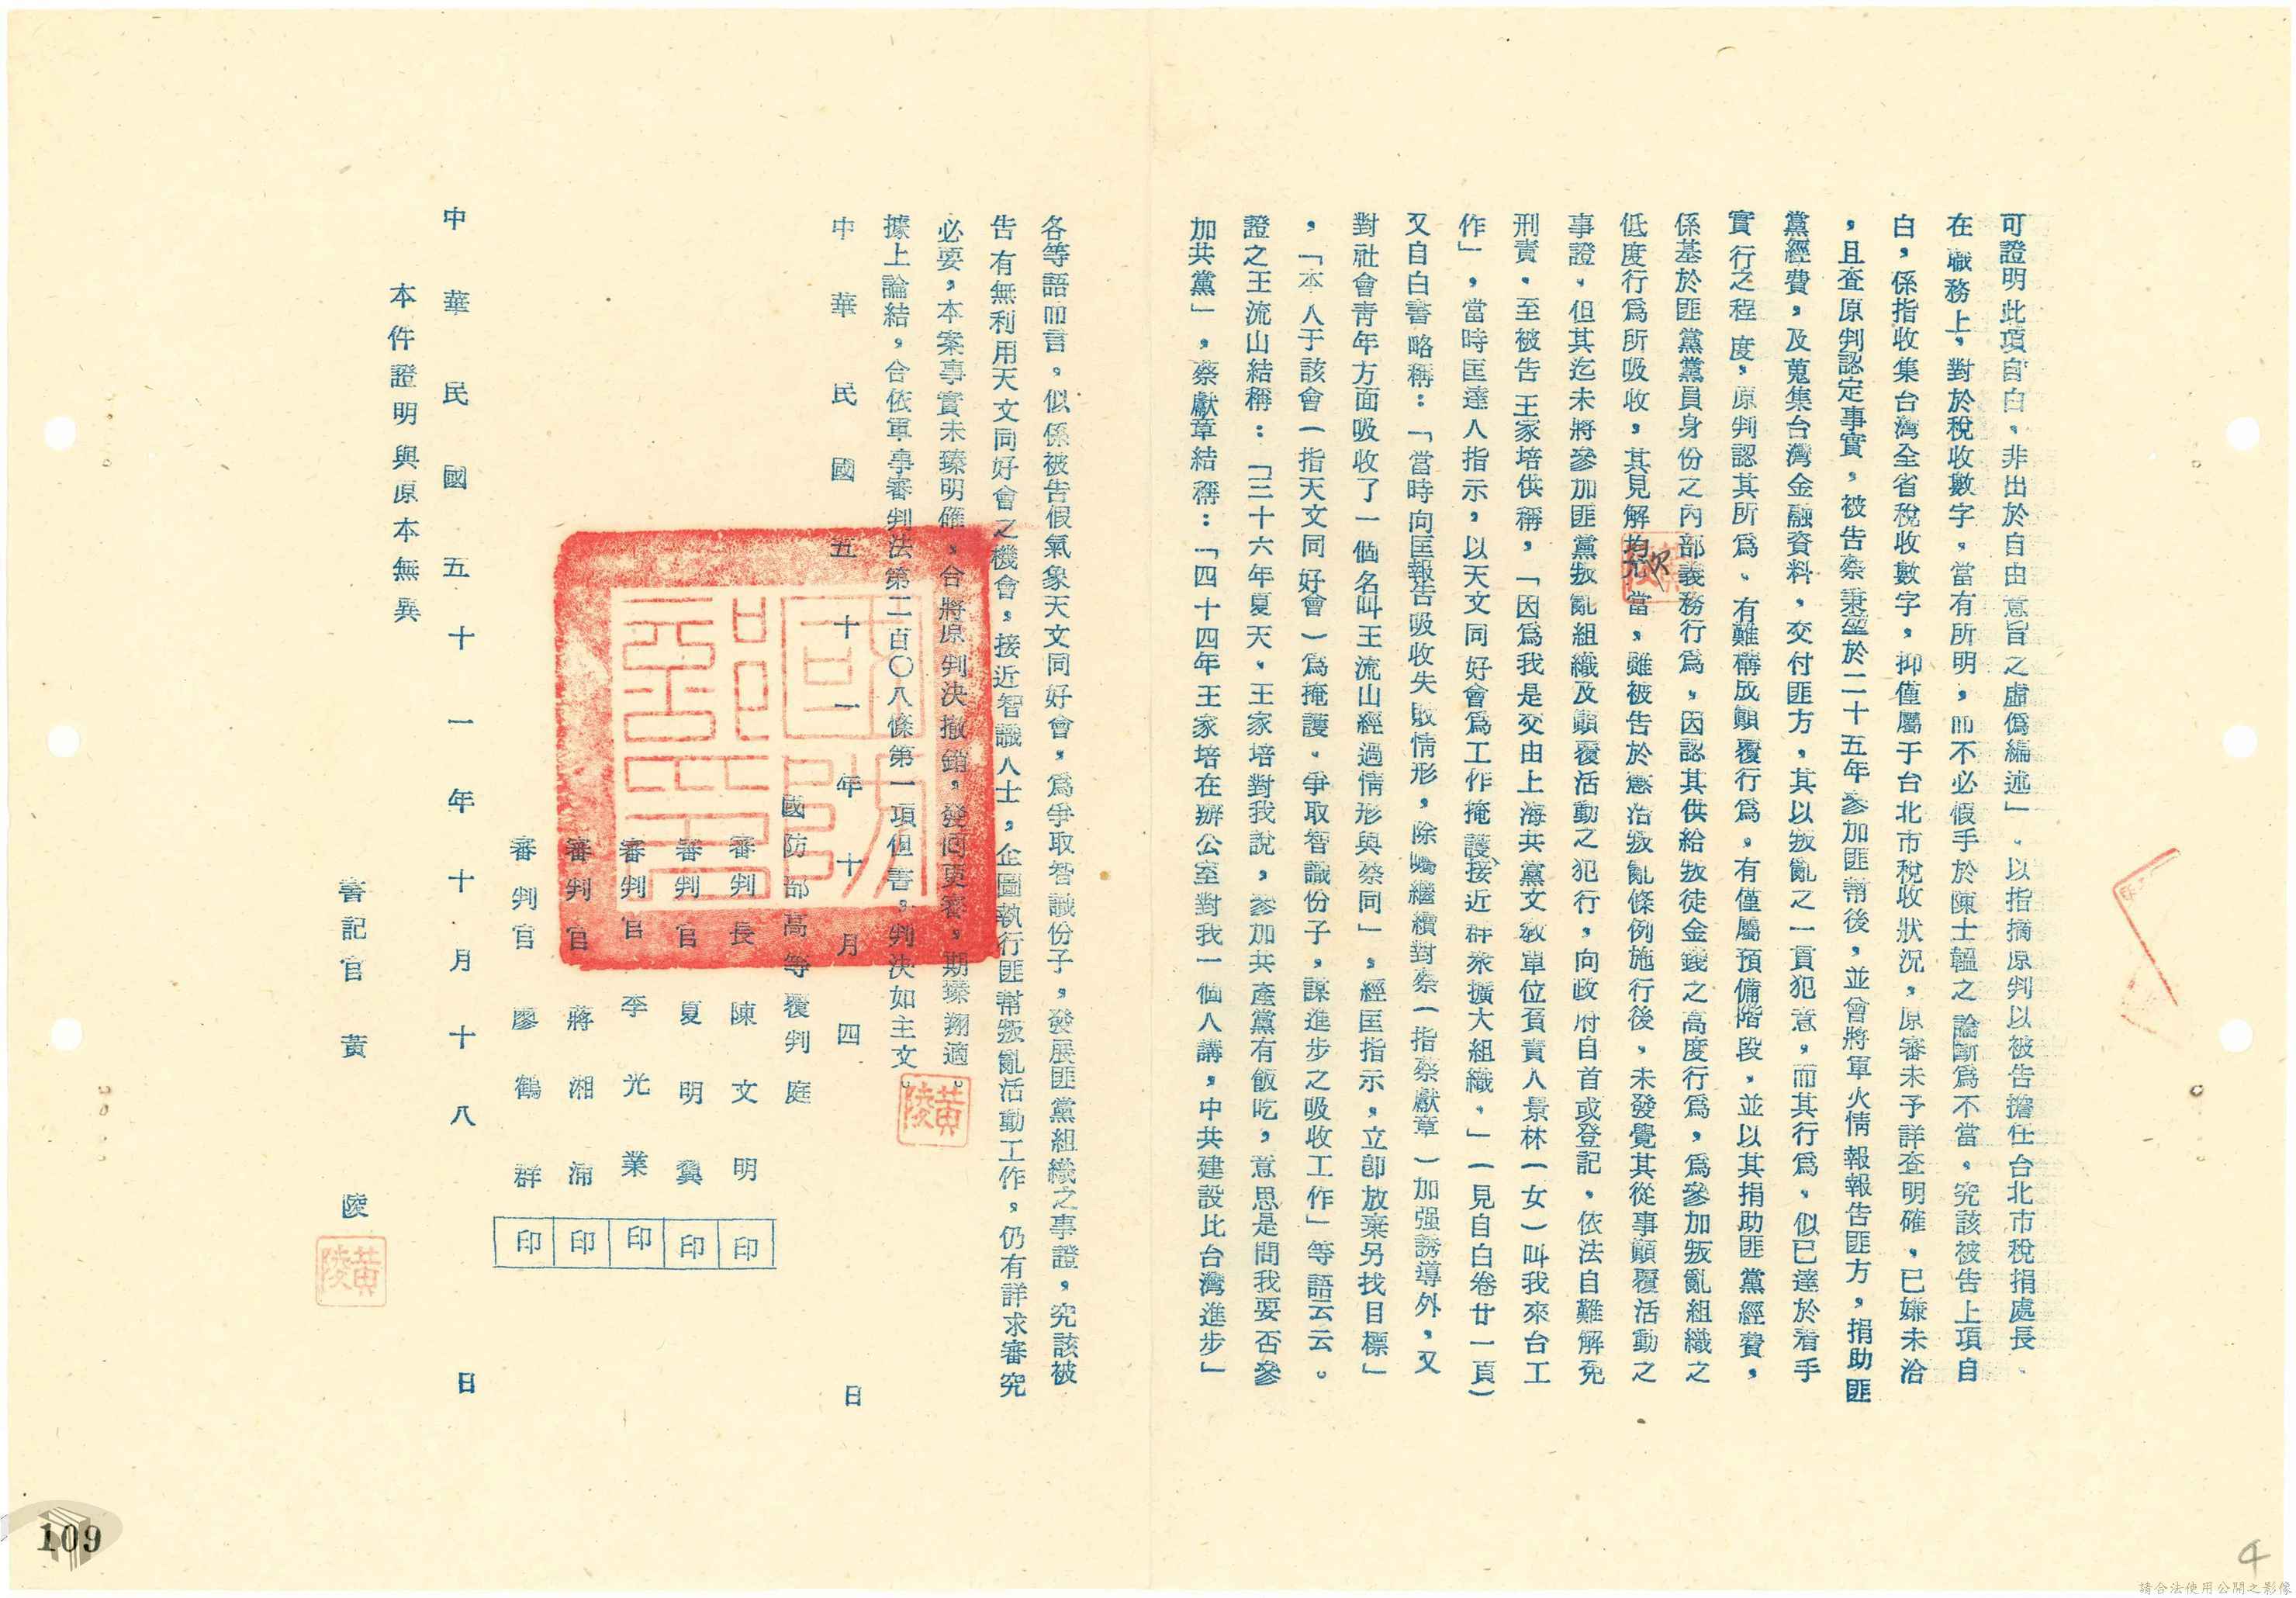 可證明此項自白，非出於自由意旨之虛偽編述」。以指摘原判以被告擔任台北市稅捐處長、
在職務上，對於稅收數字，當有所明，而不必假手於陳士韞之論斷為不當。究該被告上項自
白，係指收集台灣全省稅收數字，抑僅屬于台北市稅收狀況，原審未予詳查明確，已嫌未洽
，且查原判認定事實，被告蔡秉堃於二十五年參加匪幫後，並曾將軍火情報報告匪方，捐助匪
黨經費，及蒐集台灣金融資料，交付匪方，其以叛亂之一貫犯意，而其行為，似已達於着手
實行之程度，原判認其所為、有難構成顛覆行為，有僅屬預備階段，並以其捐助匪黨經費，
係基於匪黨黨員身份之內部義務行為，因認其供給叛徒金錢之高度行為，為參加叛亂組織之
低度行為所吸收，其見解均欠允當，雖被告於懲治叛亂條例施行後，未發覺其從事顛覆活動之
事證，但其迄未將參加匪黨叛亂組織及顛覆活動之犯行，向政府自首或登記，依法自難解免
刑責，至被告王家培供稱，「因為我是交由上海共黨文教單位負責人景林（女）叫我來台工
作」，當時匡達人指示，以天文同好會為工作掩護接近群衆擴大組織，」（見自白卷廿一頁）
又自白書略稱：「當時向匡報告吸收失敗情形，除囑繼續對蔡（指蔡獻章）加强誘導外，又
對社會青年方面吸收了一個名叫王流山經過情形與蔡同」，經匡指示，立即放棄另找目標」
，「本人于該會（指天文同好會）為掩護，爭取智識份子，謀進步之吸收工作」等語云云。
證之王流山結稱：「三十六年夏天，王家培對我說，參加共產黨有飯吃，意思是問我要否參
加共黨」，蔡獻章結稱：「四十四年王家培在辦公室對我一個人講，中共建設比台灣進步」
各等語而言，似係被告假氣象天文同好會，為爭取智識份子，發展匪黨組織之事證，究該被
告有無利用天文同好會之機會，接近智識人士，企圖執行匪幫叛亂活動工作，仍有詳求審究
必要，本案事實未臻明確，合將原判決撤銷，發回更審，期臻翔適。
據上論結，合依軍事審判法第二百〇八條第一項但書，判決如主文。
黃陵
中華民國五十一年十月四日
國防部高等覆判庭
審判長 陳文明 印
審判官 夏明翼 印
審判官 李光業 印
審判官 蔣湘浦 印
審判官 廖鶴群 印
國防部印
中華民國五十一年十月十八日
本件證明與原本無異
書記官 黃陵
黃陵
109
4
請合法使用公開之影像